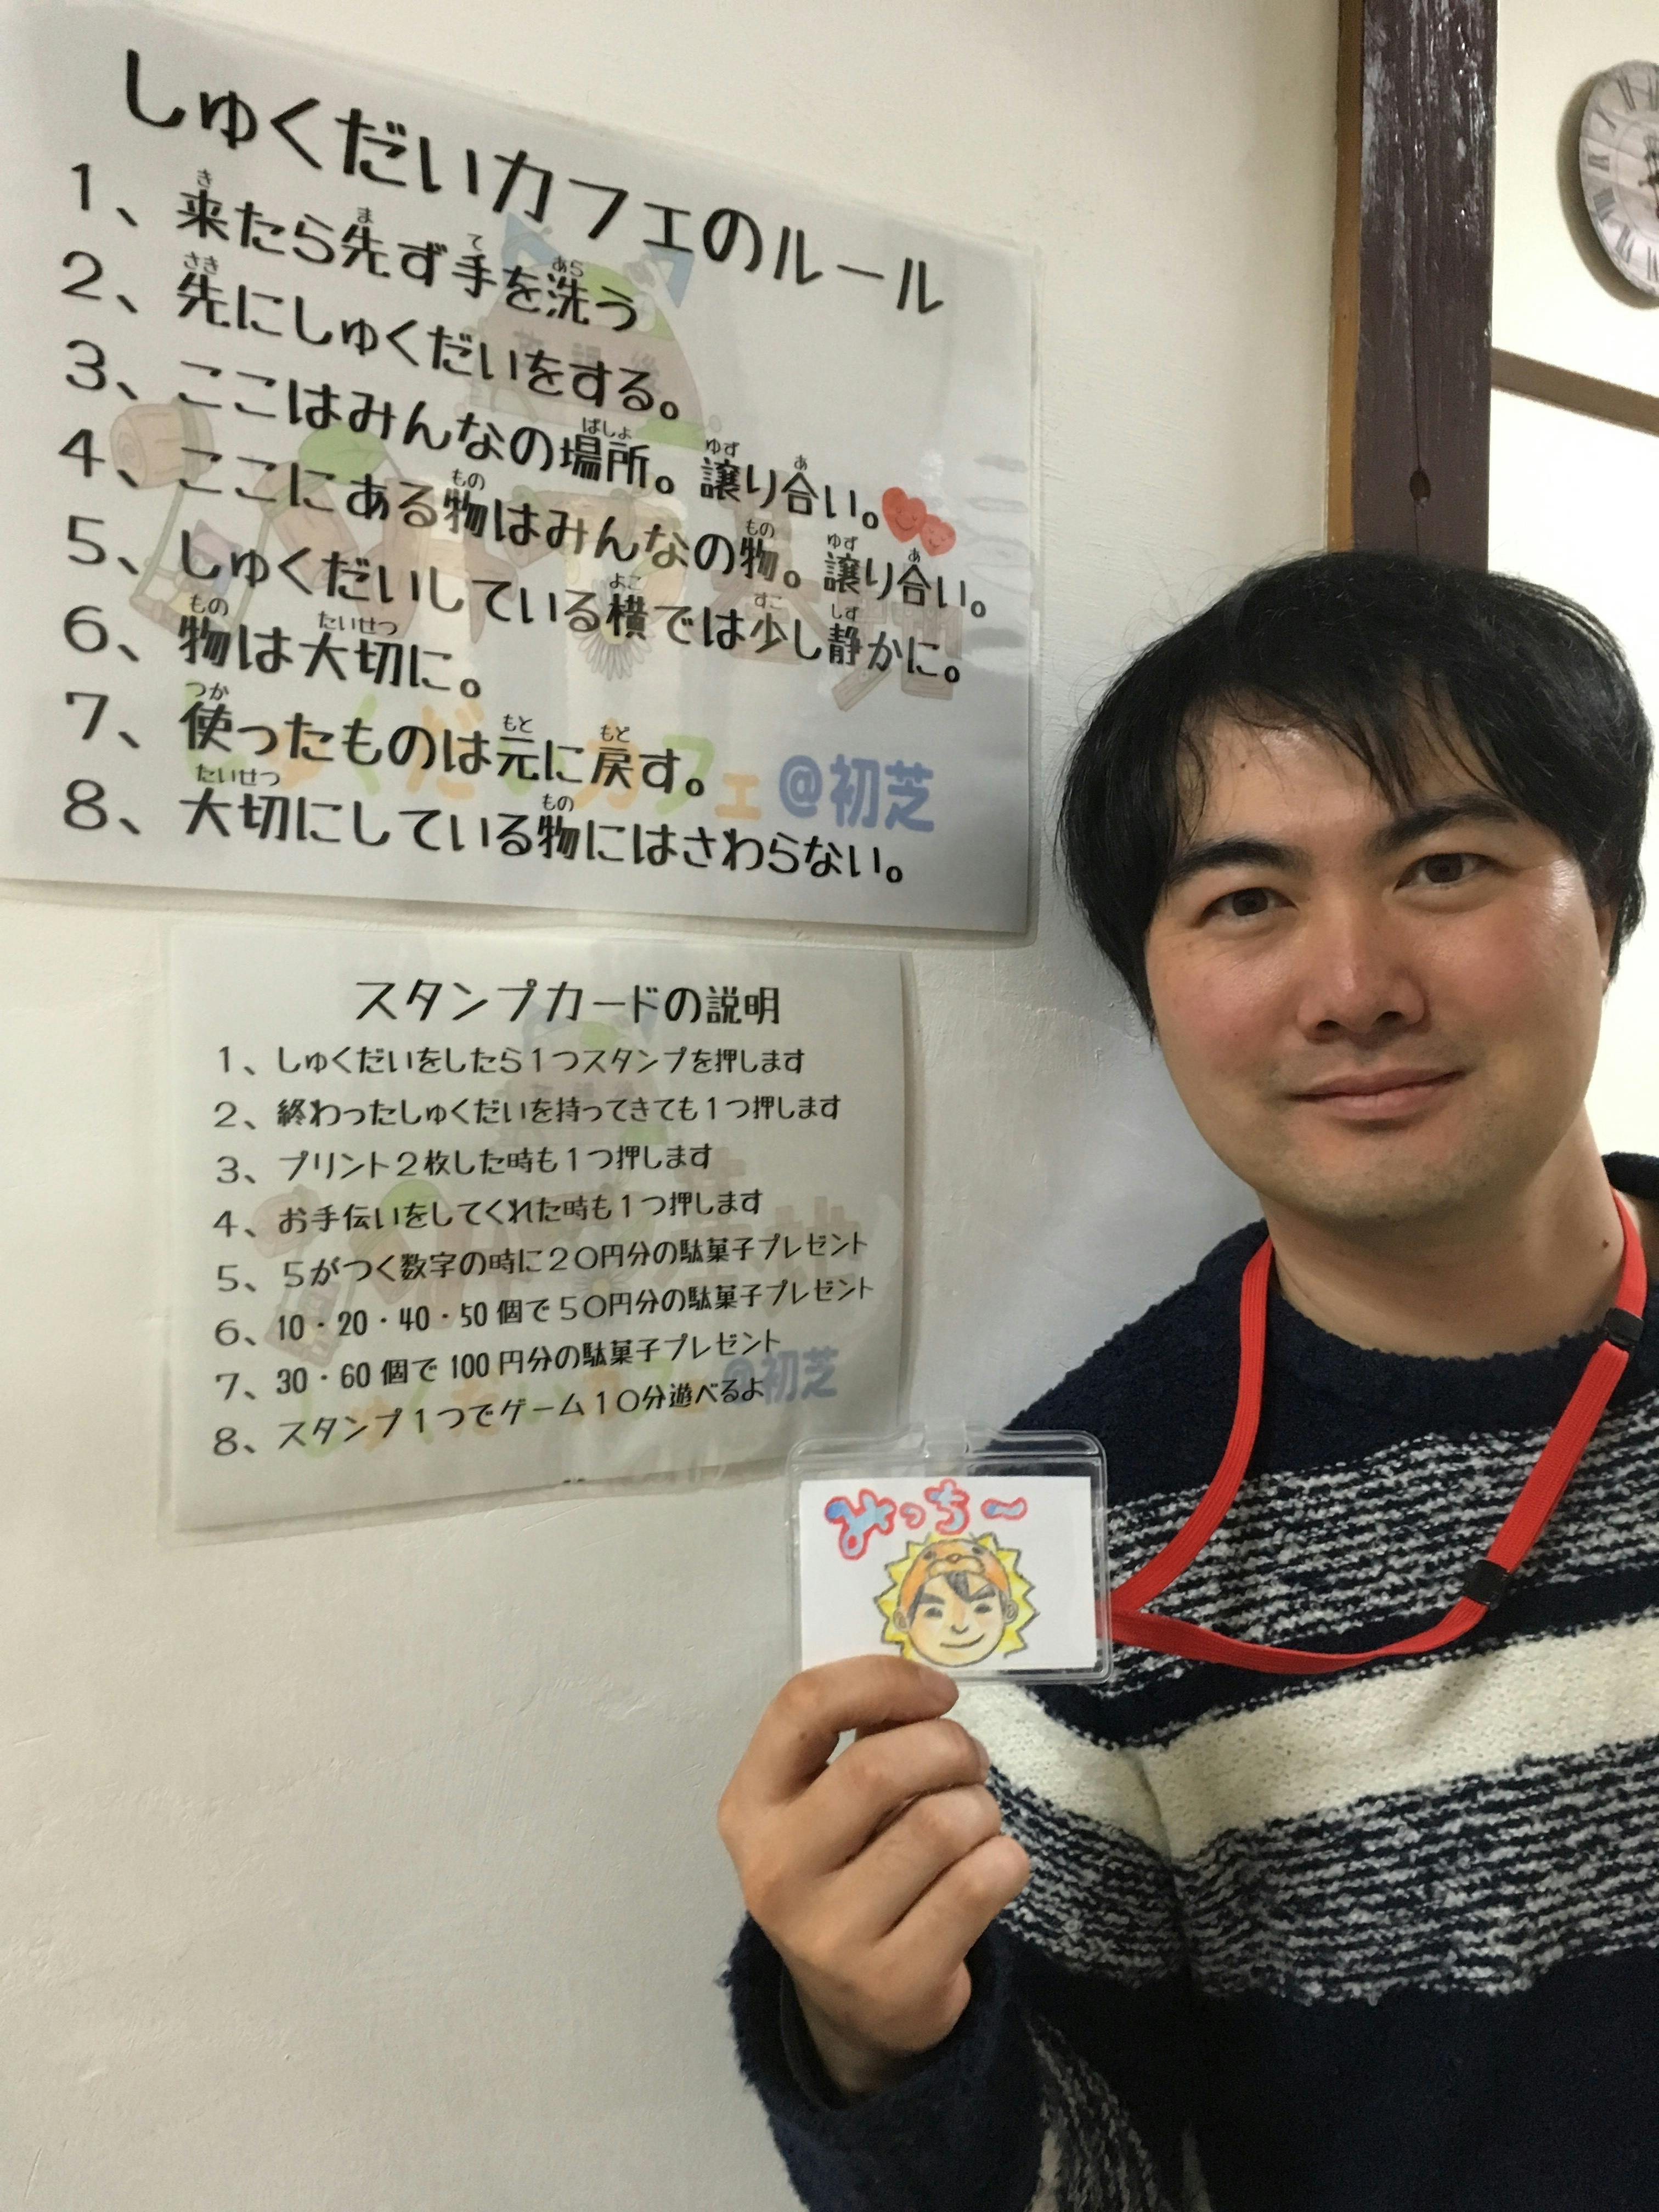 しゅくだいカフェのルール
1、来たら先ず手を洗う
2、先にしゅくだいをする。
3、ここはみんなの場所。譲り合い。
4、ここにある物はみんなの物。譲り合い。
5、しゅくだいしている横では少し静かに。
6、物は大切に。
7、使ったものは元に戻す。
8、大切にしている物にはさわらない。
しゅくだいカフェ@初芝
スタンプカードの説明
1、しゅくだいをしたら1つスタンプを押します
2、終わったしゅくだいを持ってきても1つ押します
3、プリント2枚した時も1つ押します
4、お手伝いをしてくれた時も1つ押します
5、5がつく数字の時に20円分の駄菓子プレゼント
6、10・20・40・50個で50円分の駄菓子プレゼント
7、30・60個で100円分の駄菓子プレゼント
8、スタンプ1つでゲーム10分遊べるよ
@初芝
みっちー